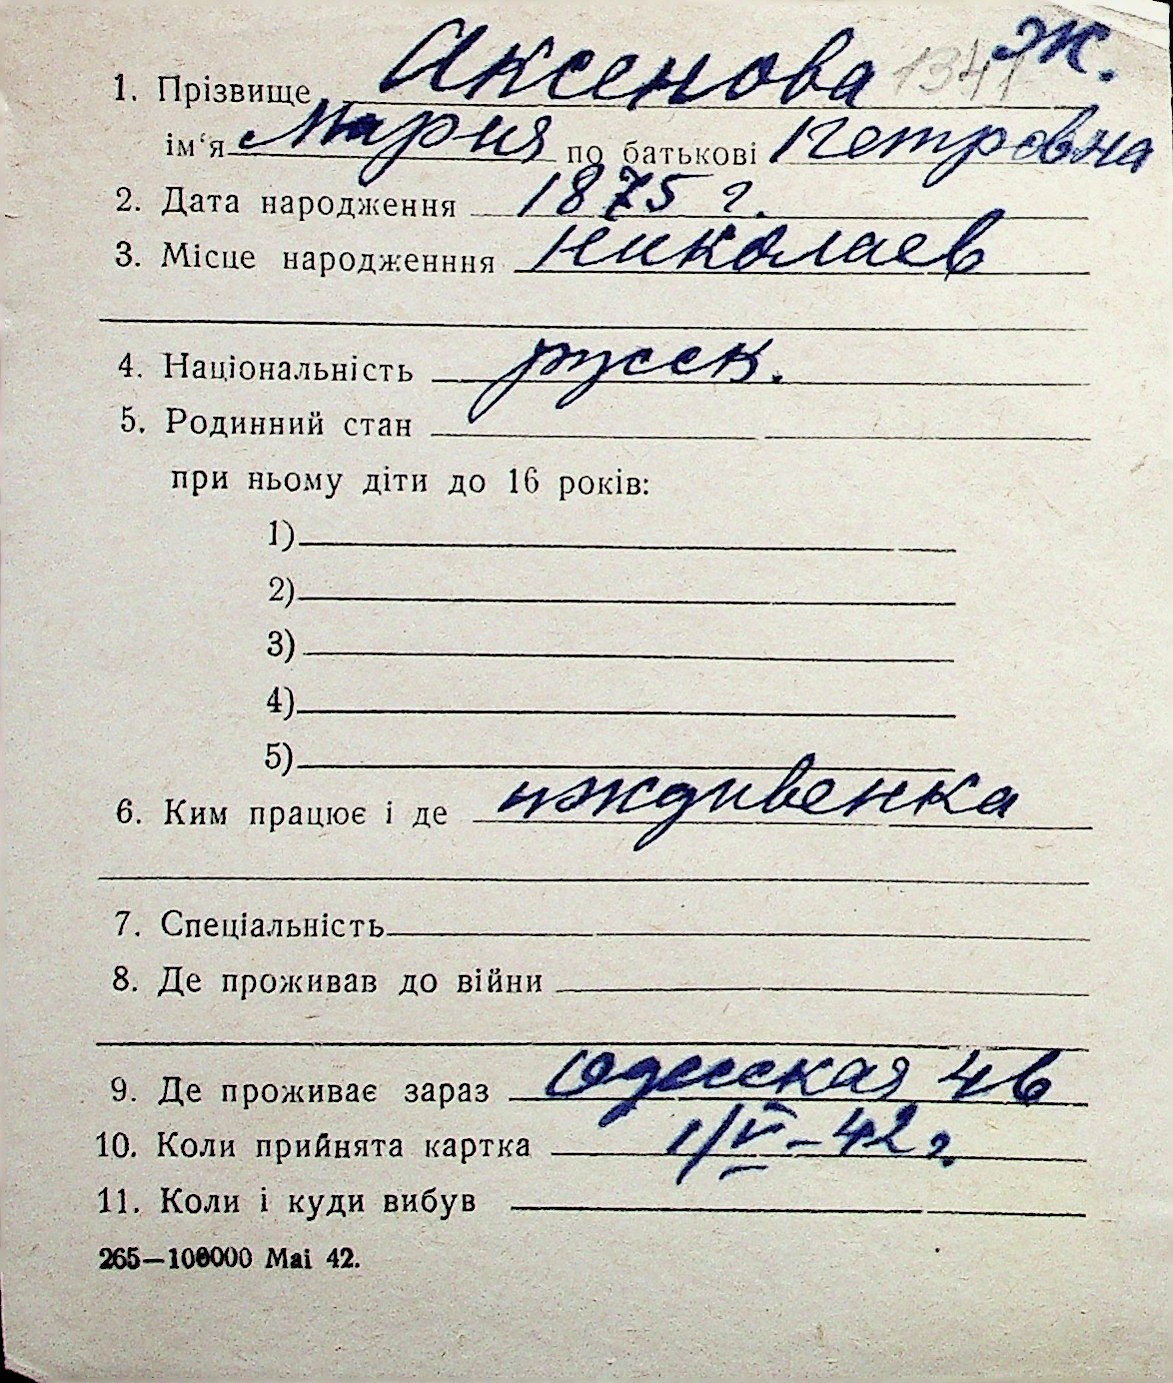 Ж.
1. Прізвище Аксенова 1341
ім‘я Мария по батькові Петровна
2. Дата народження 1875 г.
3. Місце народженння Николаев
4. Національність русск.
5. Родинний стан
при ньому діти до 16 років:
1)
2)
3)
4)
5)
6. Ким працює і де иждивенка
7. Спеціальність
8. Де проживав до війни
9. Де проживає зараз Одесская 4в
10. Коли прийнята картка 1/V–42 г.
11. Коли і куди вибув
265—100000 Mai 42.